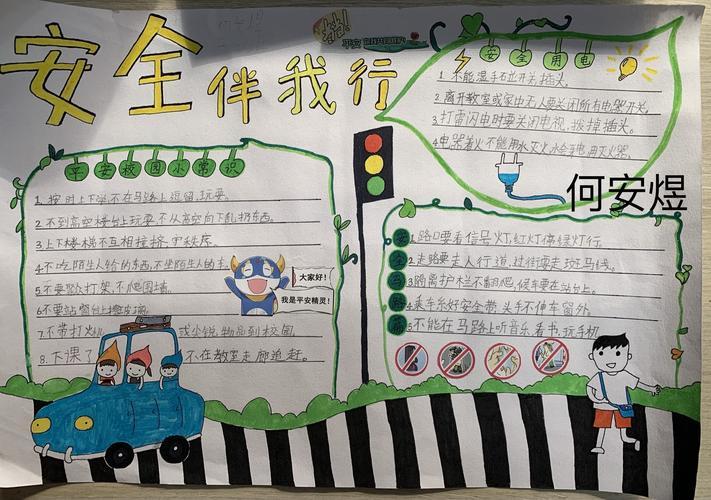 安全伴我行
平安校园小常识
1.按时上下学,不在马路上逗留,玩耍。
2.不到高空楼台上玩耍,不从高空向下乱扔东西。
3.上下楼梯不互相拥挤,
4.不吃陌生人给的东西,不坐陌生人的车。
5.不要聚众打架,不爬围墙。
6.不要站窗台上擦玻璃
7.不带打火 或尖锐物品到校园
8.下课了 不在教室走廊追赶。
大家好!
我是平安精灵!
安全用电
1.不能湿手右边开关插头。
2.离开教室或家中无人要关闭所有电器开关。
3.打雷闪电时要关闭电视,拔掉插头。
4.电器着火不能用水灭火,
何安煜
1.路口要看信号灯,红灯停绿灯行。
2.走路要走人行道,过街要走斑马线。
3.隔离护栏不翻爬,候车要在站台上。
4.乘车系好安全带,头手不伸车窗外。
5.不能在马路上听音乐看书,玩手机